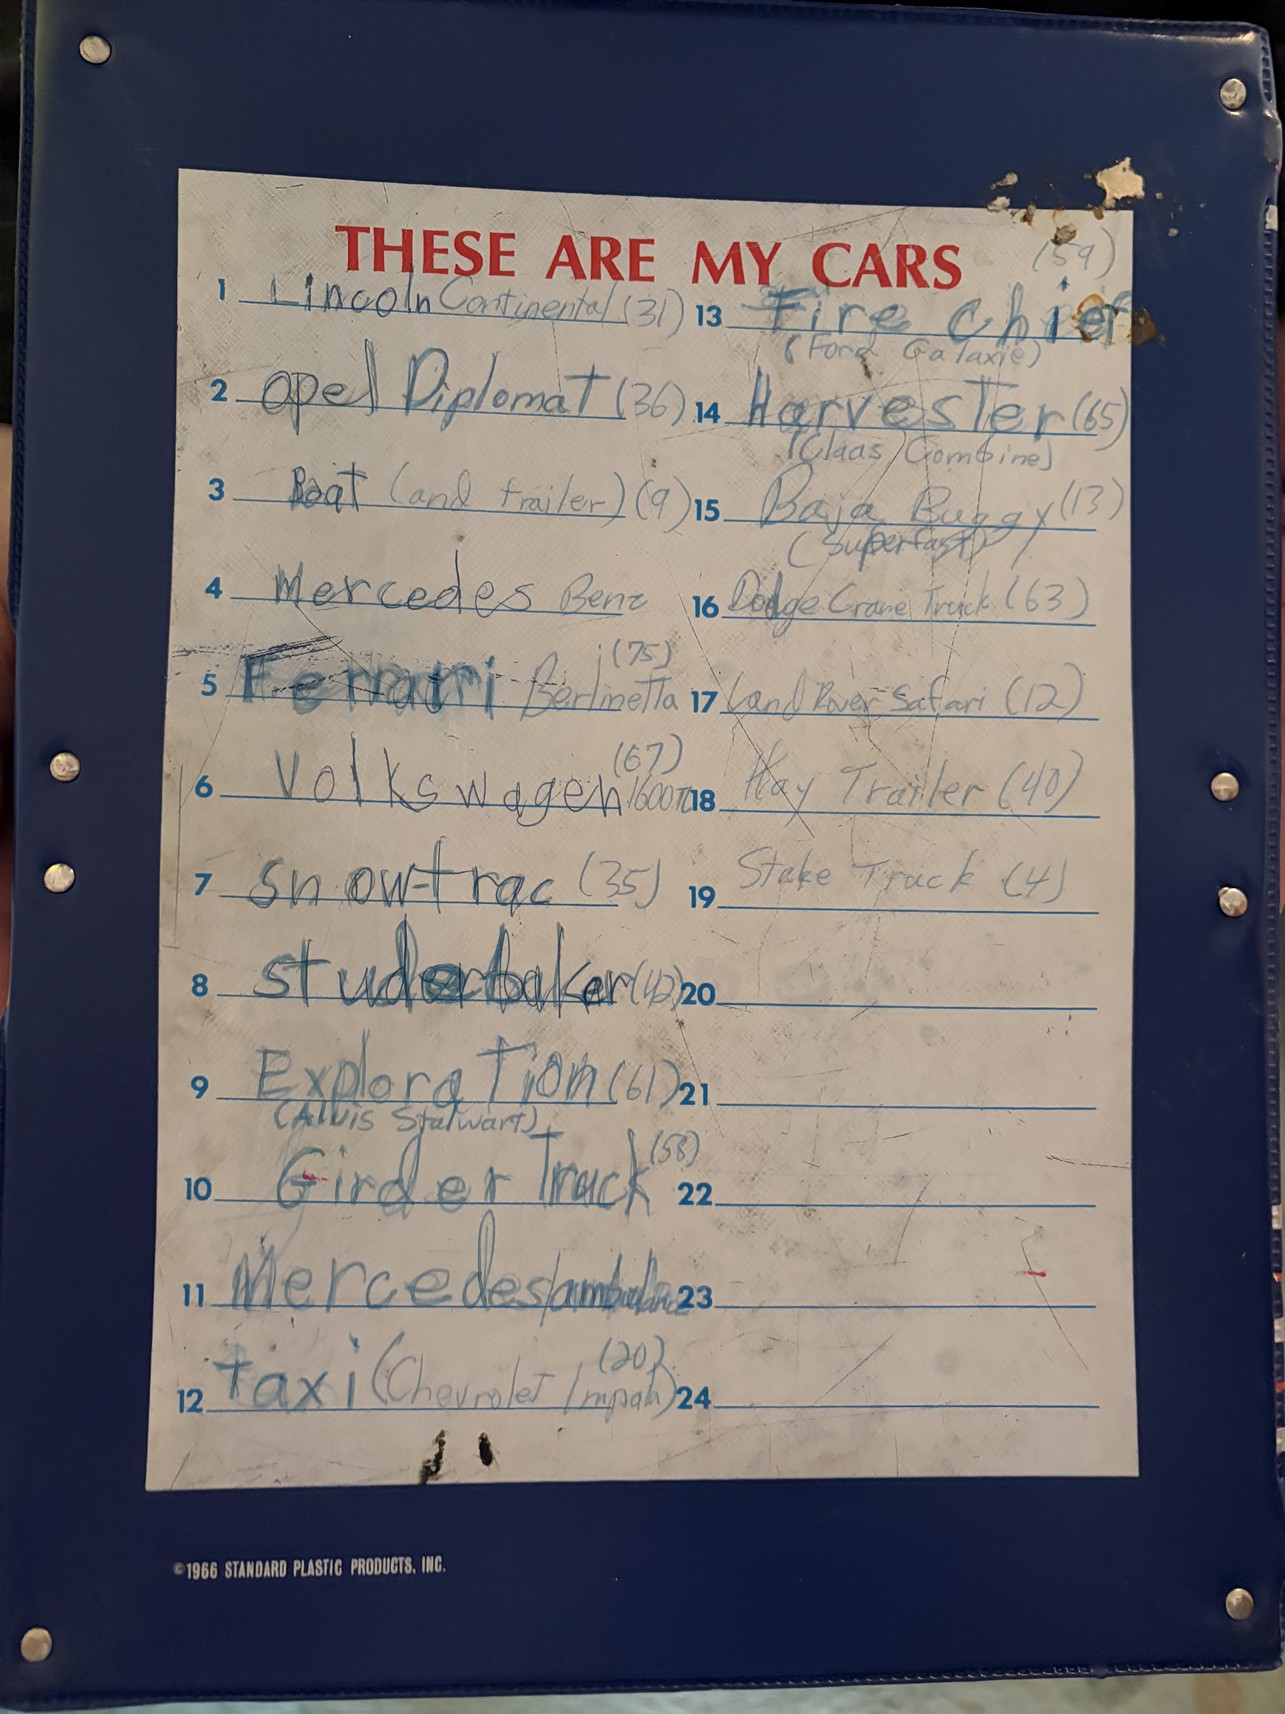 THESE ARE MY CARS
1 Lincoln Continental (31)
2 Opel Diplomat (36)
3 Boat (and trailer) (9)
4 Mercedes Benz
5 Ferrari Berlinetta (75)
6 Volkswagen 1600TL (67)
7 Snow-trac (35)
8 studerbaker (42)
9 Exploration (61)
(Alvis Stalwart)
10 Girder Truck (58)
11 Mercedes/ambulance
12 taxi (Chevrolet Impala) (20)
13 Fire chief (59)
(Ford Galaxie)
14 Harvester (65)
(Claas Combine)
15 Baja Buggy (13)
(Superfast)
16 Dodge Crane Truck (63)
17 Land Rover Safari (12)
18 Hay Trailer (40)
19 Stake Truck (4)
20
21
22
23
24
©1966 STANDARD PLASTIC PRODUCTS, INC.